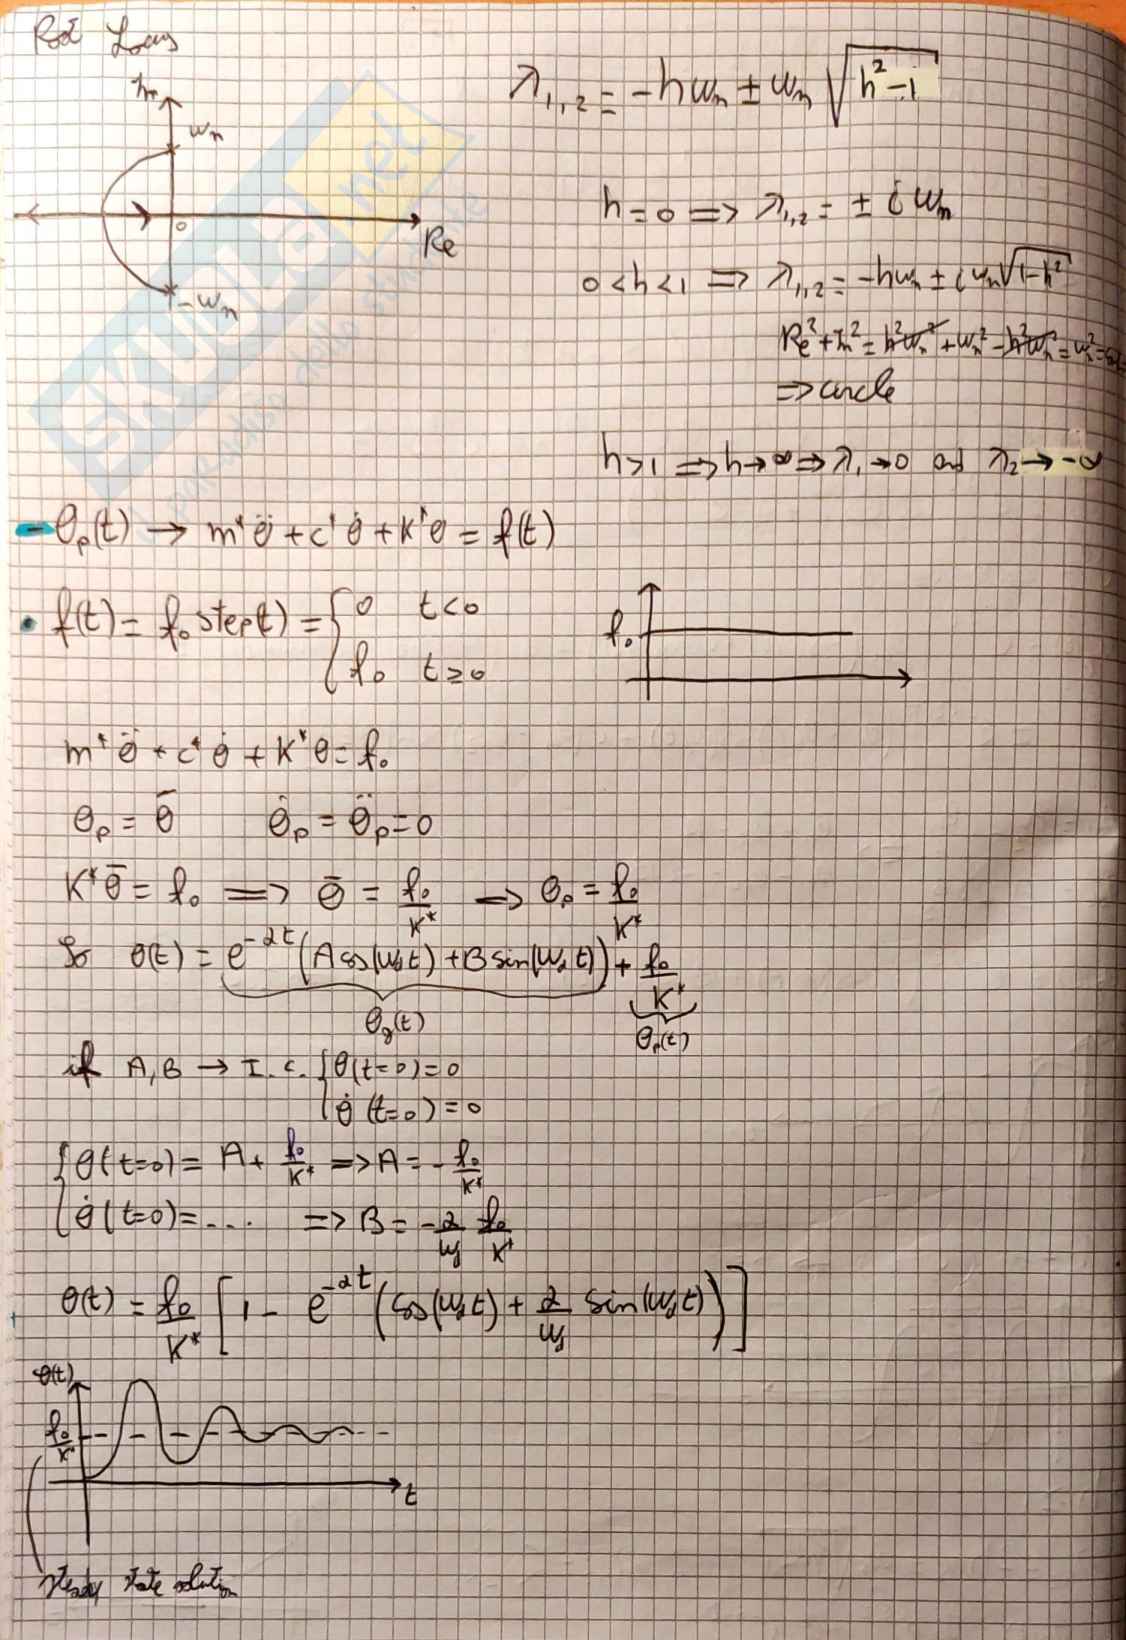 Root Locus
λ₁,₂ = -hωₙ ± ωₙ √(h²-1)
Im
ωₙ
0
Re
-ωₙ
h=0 => λ₁,₂ = ± i ωₙ
0<h<1 => λ₁,₂ = -hωₙ ± i ωₙ√(1-h²)
Re²+Im² = h²ωₙ² + ωₙ² - h²ωₙ² = ωₙ² =
=> circle
h>1 => h→∞ => λ₁→0 and λ₂→-∞
SKUOLA.net
paradiso dello studente
- θₚ(t) → m*θ̈ + c*θ̇ + k*θ = f(t)
• f(t) = f₀ step(t) = { 0 t<0
f₀ t≥0
f₀
m*θ̈ + c*θ̇ + k*θ = f₀
θₚ = θ̄ θ̇ₚ = θ̈ₚ = 0
k*θ̄ = f₀ => θ̄ = f₀/k* → θₚ = f₀/k*
So θ(t) = e^(-αt) (A cos(ω_d t) + B sin(ω_d t)) + f₀/k*
θ_g(t) θₚ(t)
if A,B → I.C. { θ(t=0)=0
θ̇(t=0)=0
{ θ(t=0) = A + f₀/k* => A = -f₀/k*
θ̇(t=0) = .... => B = -α/ω_d f₀/k*
θ(t) = f₀/k* [1 - e^(-αt) (cos(ω_d t) + α/ω_d sin(ω_d t))]
θ(t)
f₀/k*
t
steady state solution